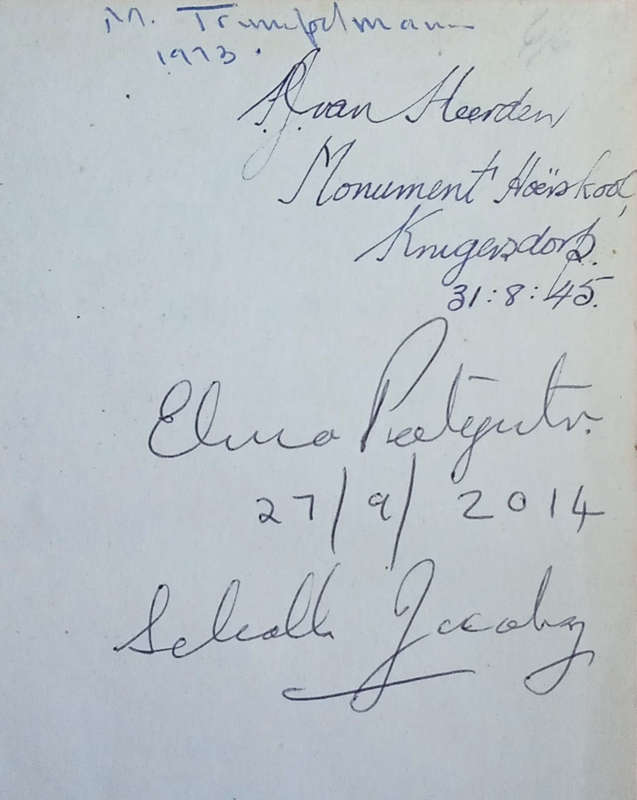 M. Trümpelmann
1973.
P.J. van Heerden
Monument Hoërskool,
Krugersdorp.
31:8:45.
Elma
27/9/2014
Schalk Jacobsz